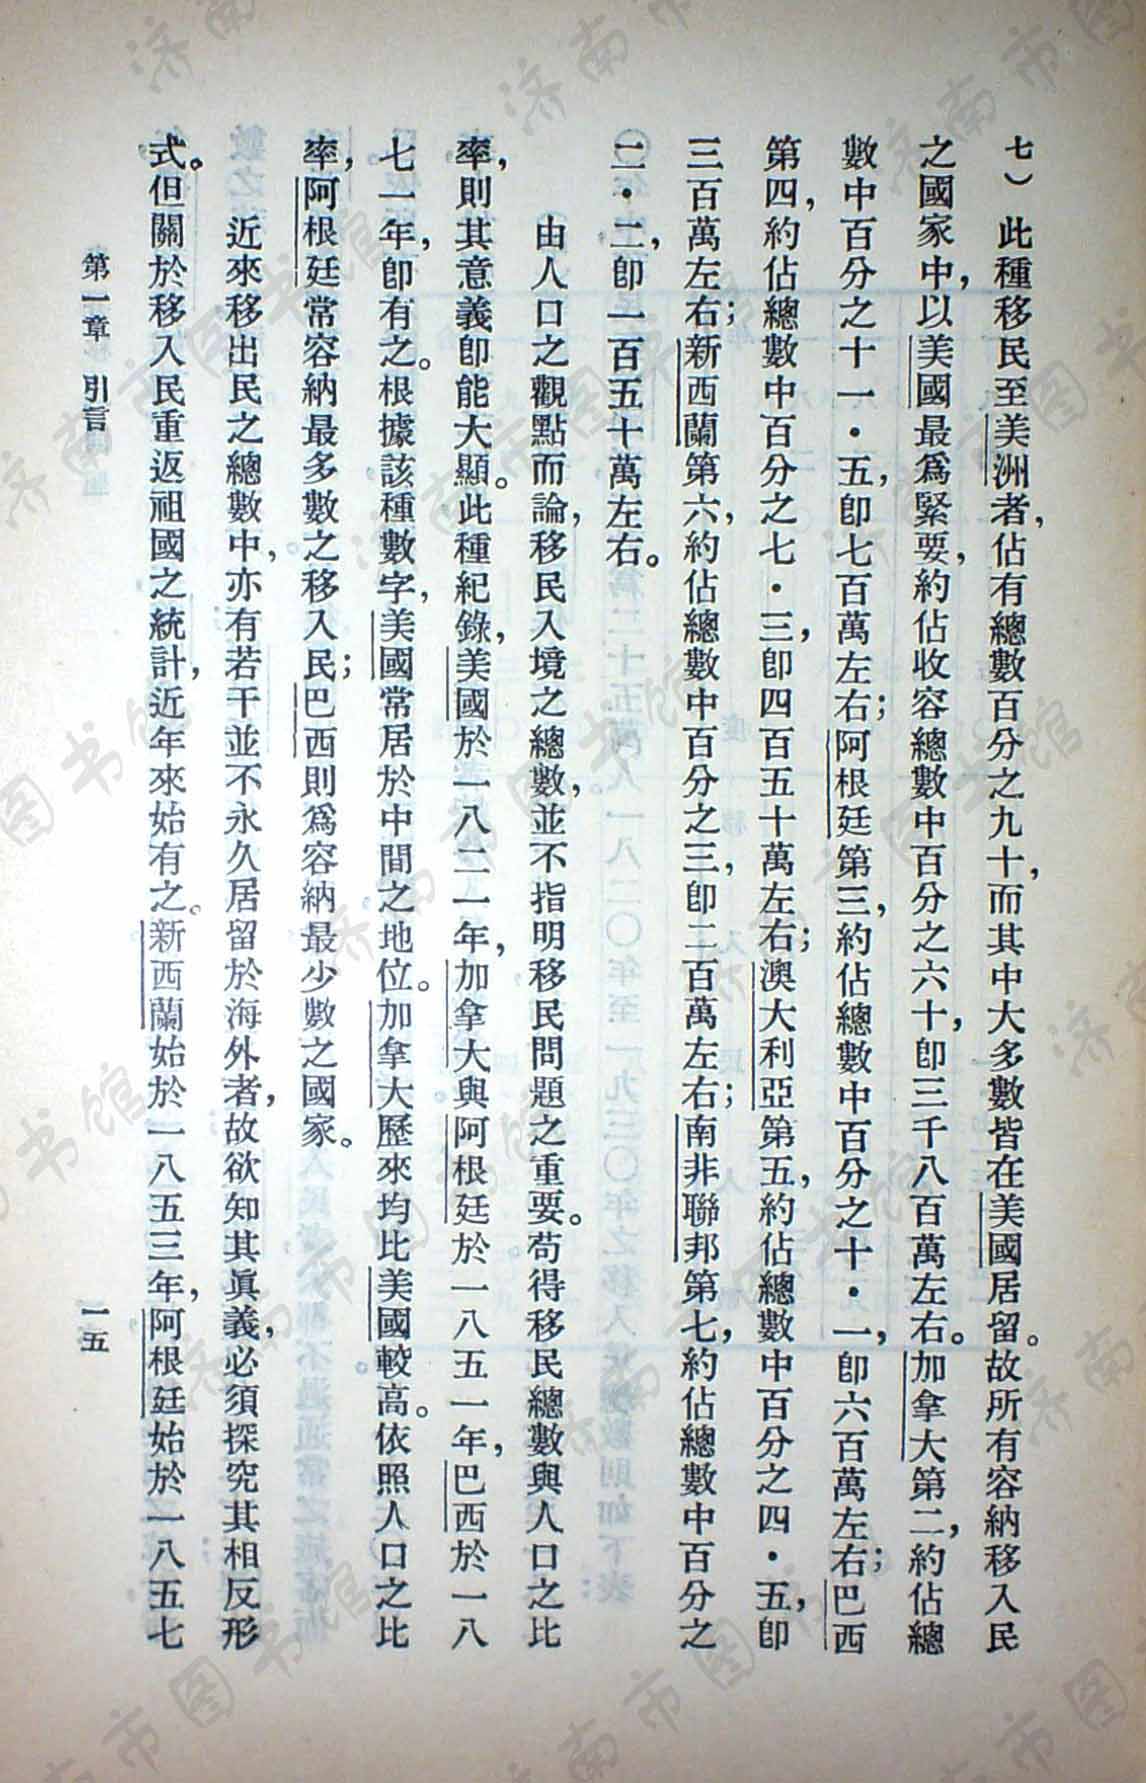 七）此種移民至美洲者，佔有總數百分之九十，而其中大多數皆在美國居留。故所有容納移入民
之國家中，以美國最爲緊要，約佔收容總數中百分之六十，卽三千八百萬左右。加拿大第二，約佔總
數中百分之十一·五，卽七百萬左右；阿根廷第三，約佔總數中百分之十·一，卽六百萬左右；巴西
第四，約佔總數中百分之七·三，卽四百五十萬左右；澳大利亞第五，約佔總數中百分之四·五，卽
三百萬左右；新西蘭第六，約佔總數中百分之三，卽二百萬左右；南非聯邦第七，約佔總數中百分之
二·二，卽一百五十萬左右。
由人口之觀點而論，移民入境之總數，並不指明移民問題之重要。苟得移民總數與人口之比
率，則其意義卽能大顯。此種紀錄，美國於一八二一年，加拿大與阿根廷於一八五一年，巴西於一八
七一年，卽有之。根據該種數字，美國常居於中間之地位。加拿大歷來均比美國較高。依照人口之比
率，阿根廷常容納最多數之移入民；巴西則爲容納最少數之國家。
近來移出民之總數中，亦有若干並不永久居留於海外者，故欲知其眞義，必須探究其相反形
式。但關於移入民重返祖國之統計，近年來始有之。新西蘭始於一八五三年，阿根廷始於一八五七
第一章 引言
一五
济南市图书馆